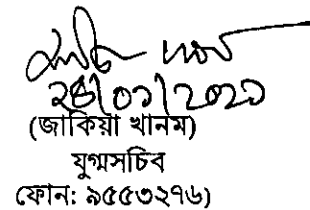 ২৪/০১/২০২১
(জাকিয়া খানম)
যুগ্মসচিব
ফোন: ৯৫৫৩২৭৬)